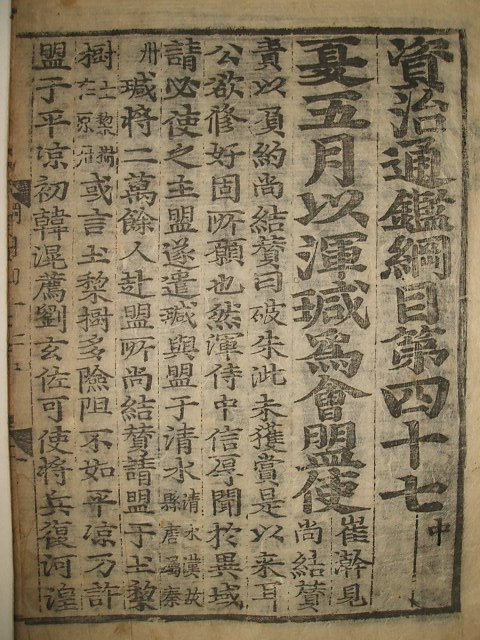 資治通鑑綱目第四十七中
夏五月以渾瑊爲會盟使崔澣見尚結贊
責以負約尚結贊曰破朱泚未獲賞是以來耳
公欲修好固所願也然渾侍中信厚聞於異域
請必使之主盟遂遣瑊與盟于清水清水漢故縣唐屬秦
州瑊將二萬餘人赴盟所尚結贊請盟于土黎
樹土黎樹在原州或言土黎樹多險阻不如平凉乃許
盟于平凉初韓滉薦劉玄佐可使將兵復河湟